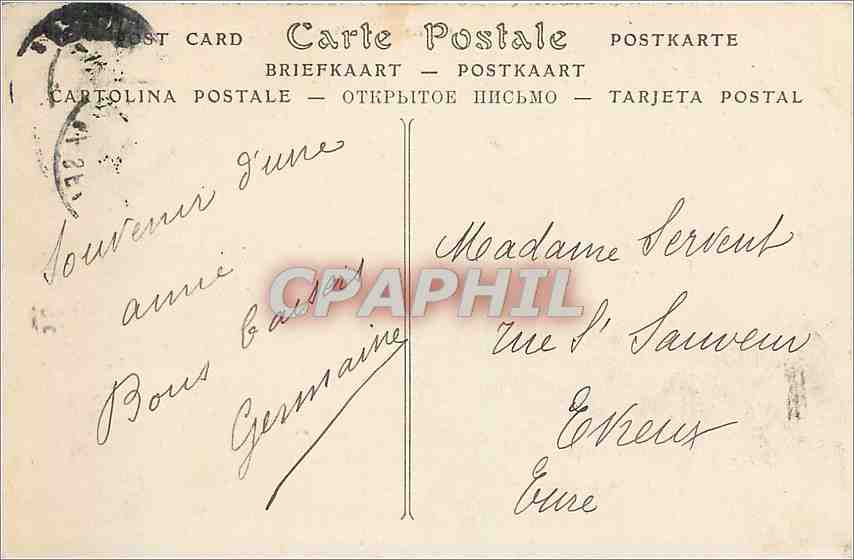 POST CARD Carte Postale POSTKARTE
BRIEFKAART — POSTKAART
CARTOLINA POSTALE — ОТКРЫТОЕ ПИСЬМО — TARJETA POSTAL
Souvenir d'une
amie
Bons baisers
Germaine
Madame Servent
rue St Sauveur
Evreux
Eure
CPAPHIL